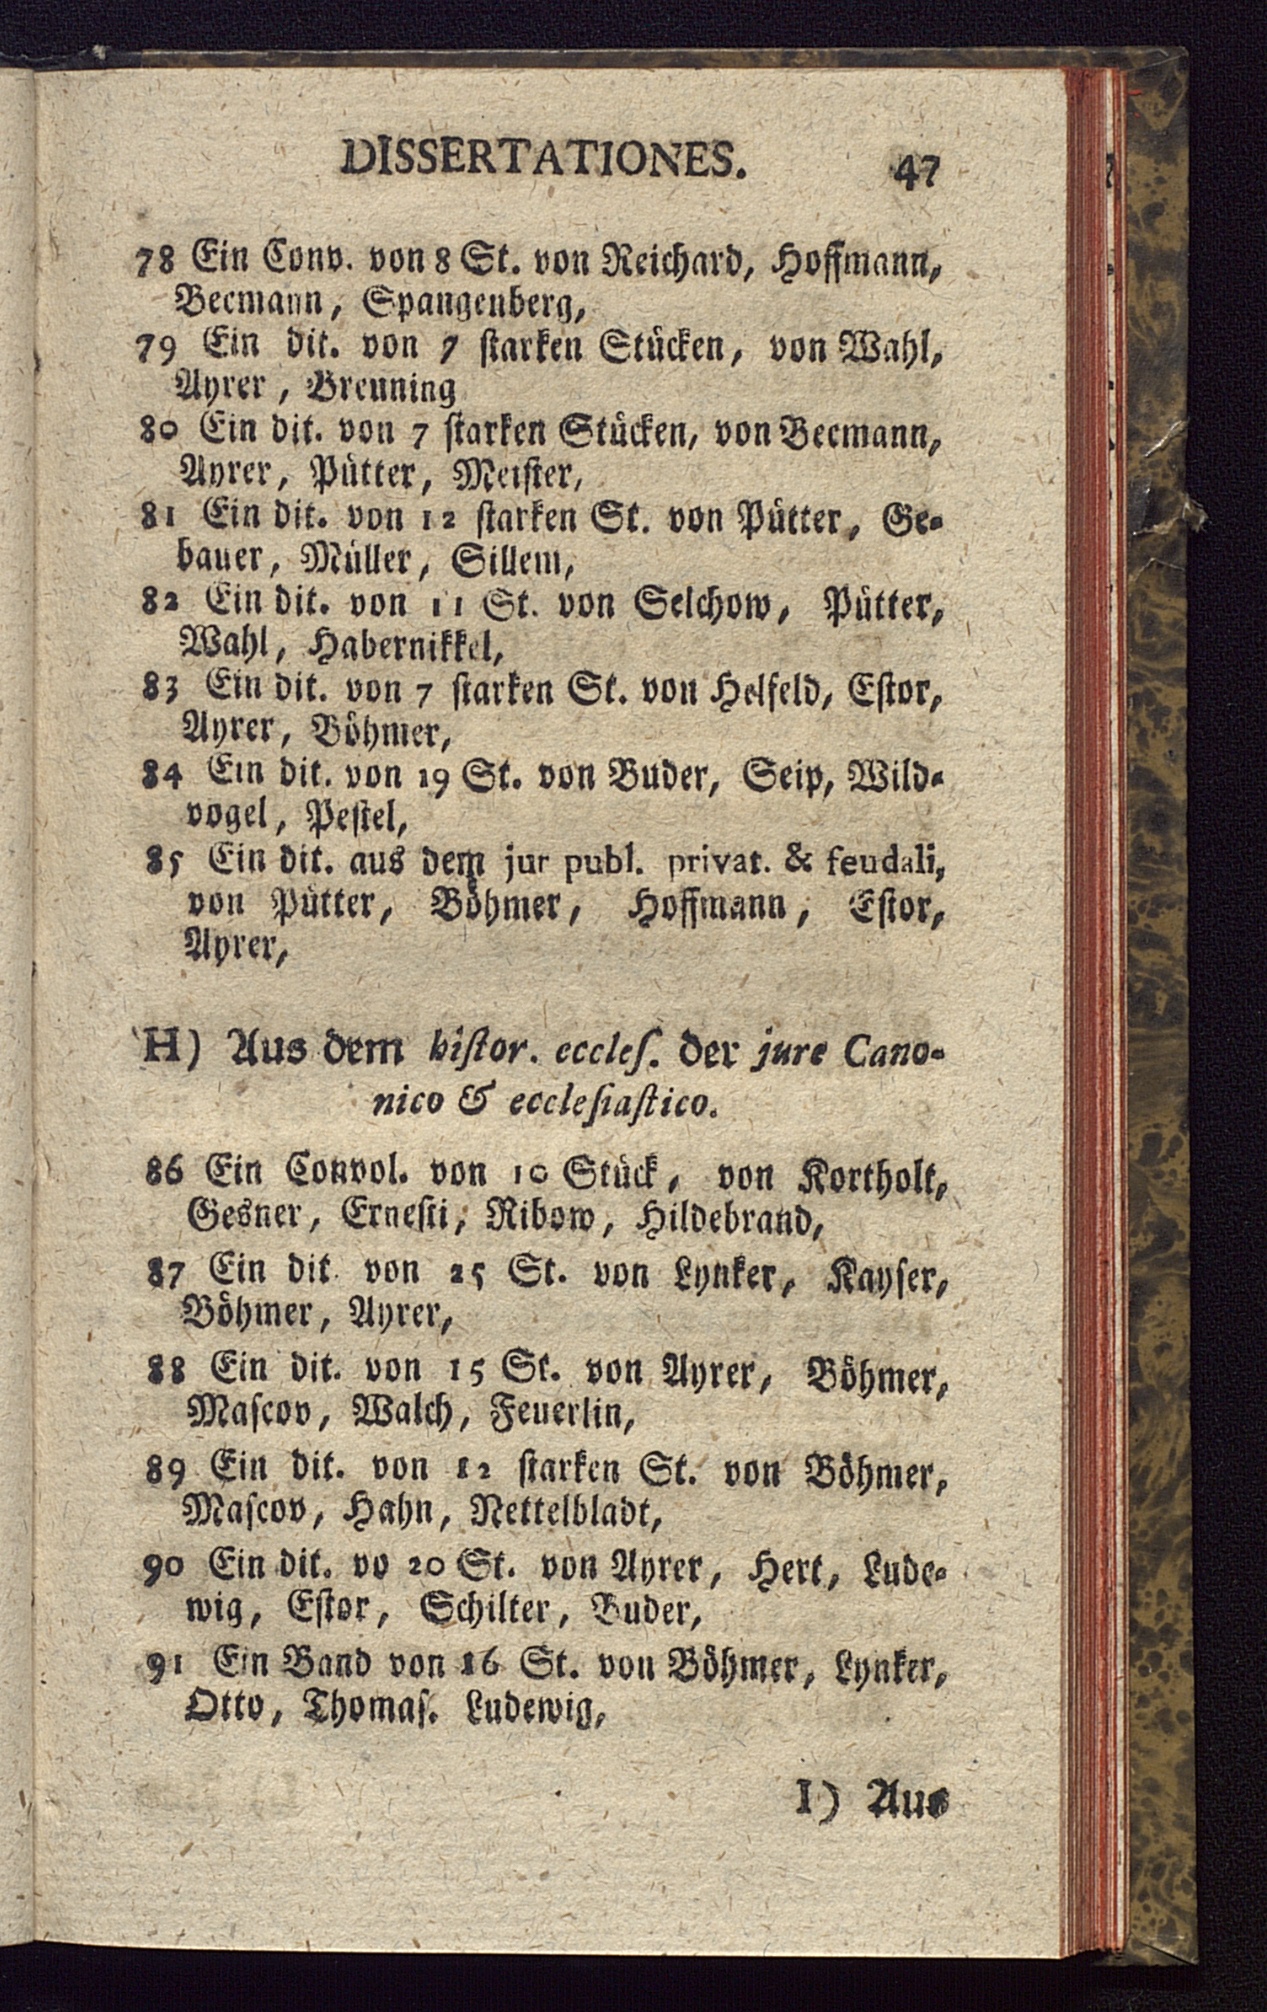 DISSERTATIONES. 47
78 Ein Conv. von 8 St. von Reichard, Hoffmann,
Becmann, Spangenberg,
79 Ein dit. von 7 starken Stücken, von Wahl,
Ayrer, Breuning
80 Ein dit. von 7 starken Stücken, von Becmann,
Ayrer, Pütter, Meister,
81 Ein dit. von 12 starken St. von Pütter, Ge-
bauer, Müller, Sillem,
82 Ein dit. von 11 St. von Selchow, Pütter,
Wahl, Habernikkel,
83 Ein dit. von 7 starken St. von Helfeld, Estor,
Ayrer, Böhmer,
84 Ein dit. von 19 St. von Buder, Seip, Wild-
vogel, Pestel,
85 Ein dit. aus dem jur publ. privat. & feudali,
von Pütter, Böhmer, Hoffmann, Estor,
Ayrer,
H) Aus dem histor. eccles. der jure Cano-
nico & ecclesiastico.
86 Ein Convol. von 10 Stück, von Kortholt,
Gesner, Ernesti, Ribow, Hildebrand,
87 Ein dit. von 25 St. von Lynker, Kayser,
Böhmer, Ayrer,
88 Ein dit. von 15 St. von Ayrer, Böhmer,
Mascov, Walch, Feuerlin,
89 Ein dit. von 12 starken St. von Böhmer,
Mascov, Hahn, Nettelbladt,
90 Ein dit. vo 20 St. von Ayrer, Hert, Lude-
wig, Estor, Schilter, Buder,
91 Ein Band von 16 St. von Böhmer, Lynker,
Otto, Thomas. Ludewig,
I) Aus